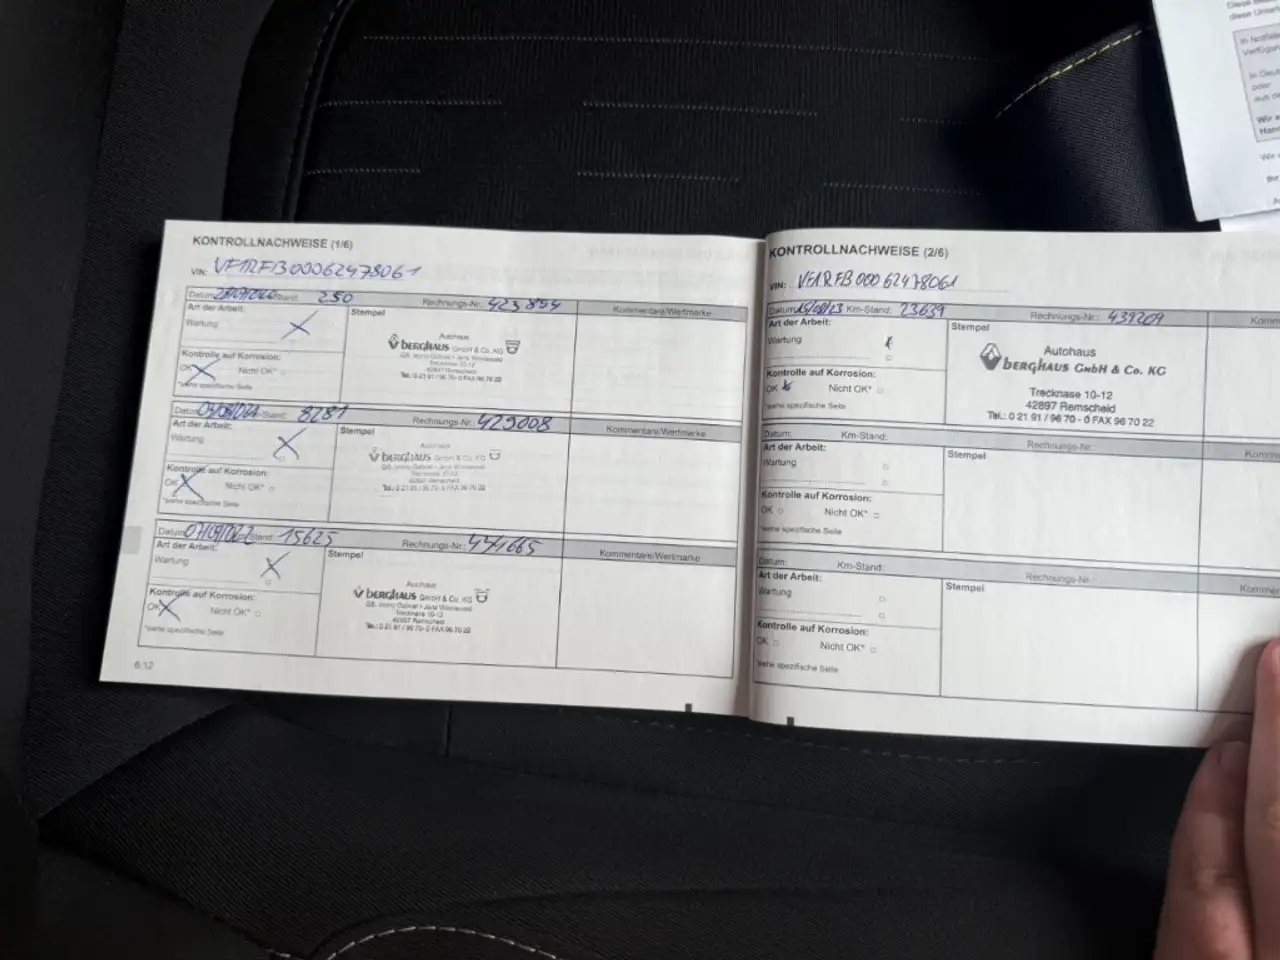 KONTROLLNACHWEISE (1/6)
VIN: VF1RFB00062478061
Datum: Stand: 250 Rechnungs-Nr.: 423854 Kommentare/Wertmarke
Art der Arbeit:
Wartung
Kontrolle auf Korrosion:
OK Nicht OK*
*siehe spezifische Seite
Stempel
Autohaus
BERGHAUS GmbH & Co. KG
Trecknase 10-12
42897 Remscheid
Tel.: 0 21 91 / 96 70- 0 FAX 96 70 22
Datum: Stand: 8281 Rechnungs-Nr.: 429008 Kommentare/Wertmarke
Art der Arbeit:
Wartung
Kontrolle auf Korrosion:
OK Nicht OK*
*siehe spezifische Seite
Stempel
Autohaus
BERGHAUS GmbH & Co. KG
Trecknase 10-12
42897 Remscheid
Tel.: 0 21 91 / 96 70- 0 FAX 96 70 22
Datum: Km-Stand: 15625 Rechnungs-Nr.: Kommentare/Wertmarke
Art der Arbeit:
Wartung
Kontrolle auf Korrosion:
OK Nicht OK*
*siehe spezifische Seite
Stempel
Autohaus
BERGHAUS GmbH & Co. KG
Trecknase 10-12
42897 Remscheid
Tel.: 0 21 91 / 96 70- 0 FAX 96 70 22
6.12
KONTROLLNACHWEISE (2/6)
VIN: VF1RFB00062478061
Datum: Km-Stand: 23639 Rechnungs-Nr.: 439209 Komm
Art der Arbeit:
Wartung
Kontrolle auf Korrosion:
OK Nicht OK*
*siehe spezifische Seite
Stempel
Autohaus
BERGHAUS GmbH & Co. KG
Trecknase 10-12
42897 Remscheid
Tel.: 0 21 91 / 96 70 - 0 FAX 96 70 22
Datum: Km-Stand: Rechnungs-Nr.: Komme
Art der Arbeit:
Wartung
Kontrolle auf Korrosion:
OK Nicht OK*
*siehe spezifische Seite
Stempel
Datum: Km-Stand: Rechnungs-Nr.: Komme
Art der Arbeit:
Wartung
Kontrolle auf Korrosion:
OK Nicht OK*
*siehe spezifische Seite
Stempel